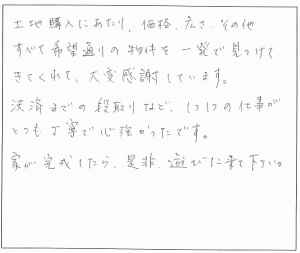 土地購入にあたり、価格、広さ、その他
すべて希望通りの物件を一発で見つけて
きてくれて、大変感謝しています。
決済までの段取りなど、1つ1つの仕事が
とても丁寧で心強かったです。
家が完成したら、是非、遊びに来て下さい。